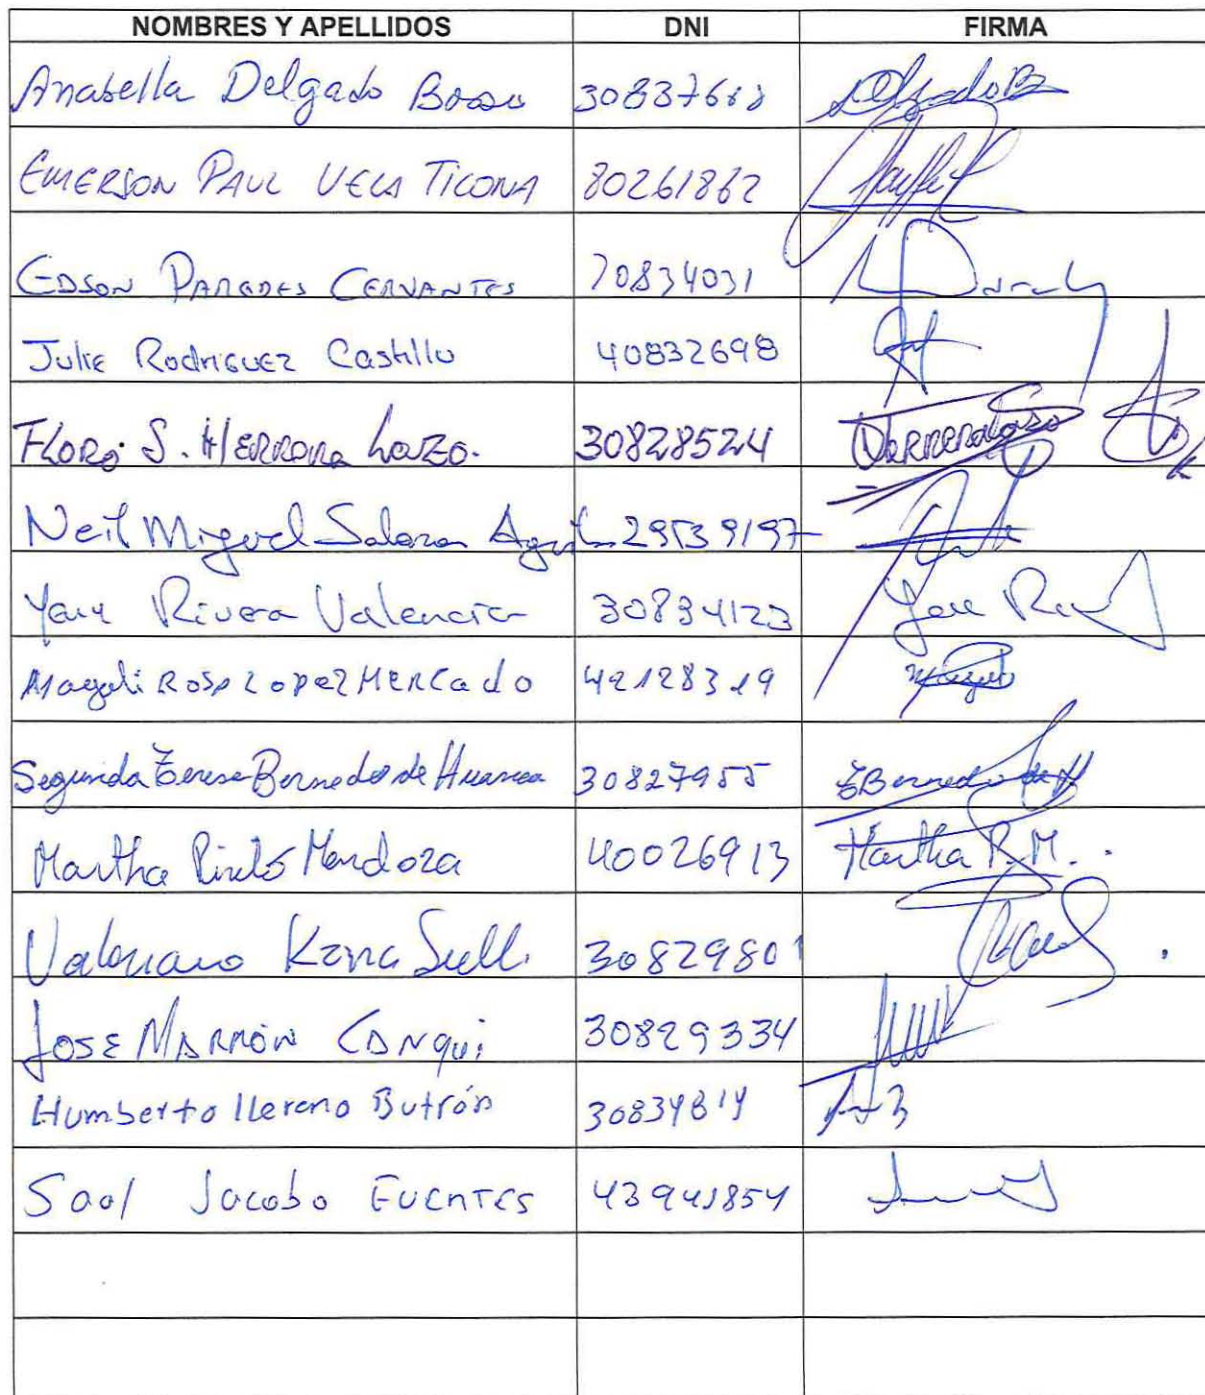 NOMBRES Y APELLIDOS DNI FIRMA
Anabella Delgado Bosso 308376
EMERSON PAUL VELA TICONA 80261862
EDSON PAREDES CERVANTES 70834031
Julie Rodriguez Castillo 40832698
FLORO S. HERRERA Lazo. 30828524
Neil Miguel Salazar 29539197
Yany Rivera Valencia 30834123 
Magali Rosa Lopez Mercado 42128319
Segunda Teresa Bernedo de Huanca 30827955 Bernedo de H
Martha Pinto Mendoza 40026913 Martha P. M.
Valeriano Kana Sulli 30829801
Jose MARRÓN CANqui 30829334
Humberto llereno Butrón 30834814
Saol Jacobo FUENTES 43941854